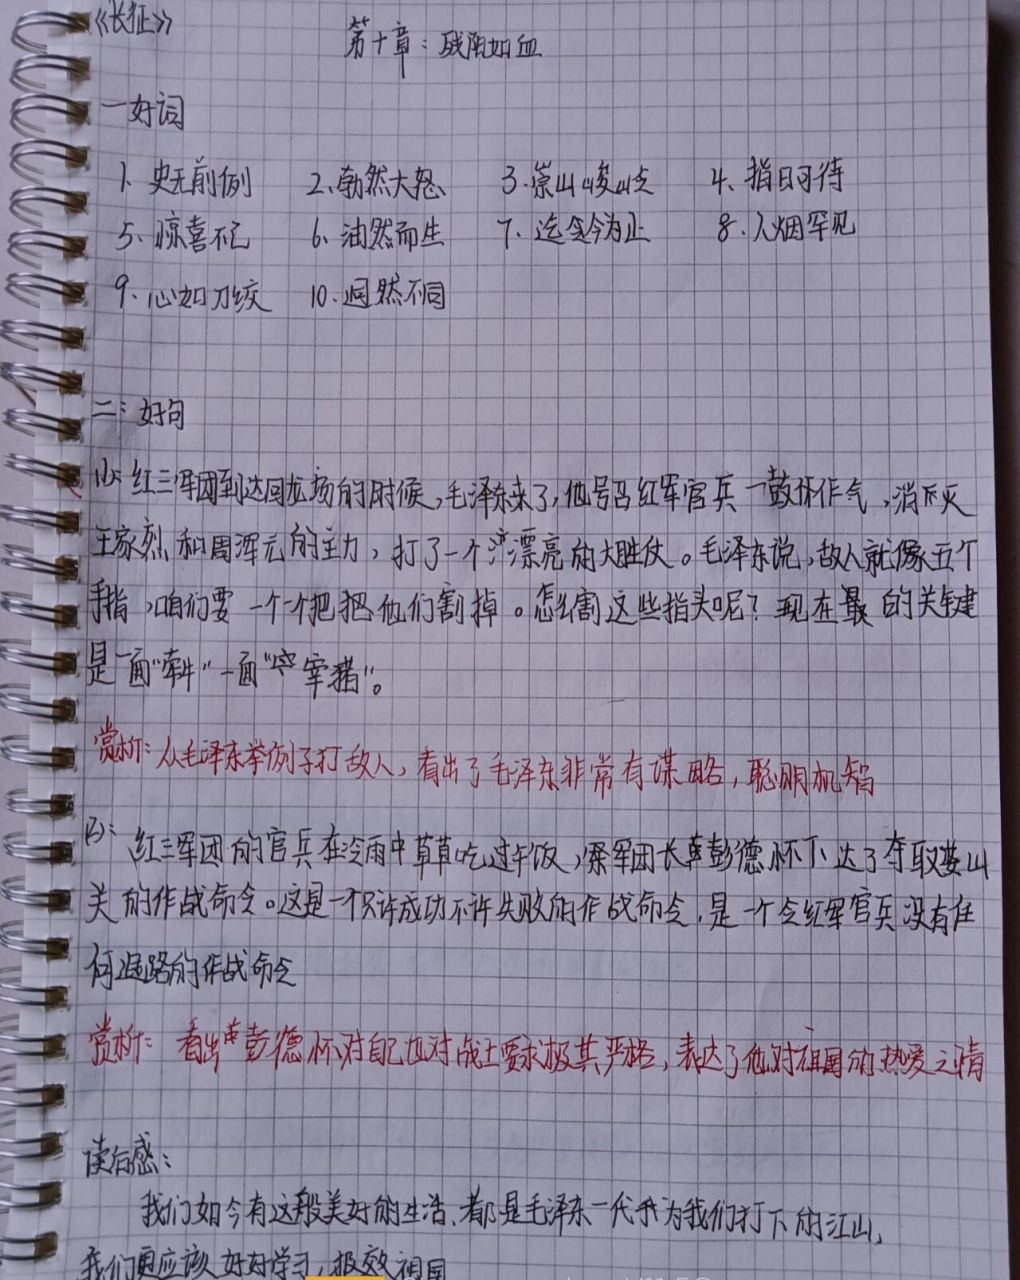 《长征》
第十章：残阳如血
一好词
1、史无前例 2、勃然大怒 3、崇山峻岭 4、指日可待
5、惊喜不已 6、油然而生 7、迄今为止 8、人烟罕见
9、心如刀绞 10、迥然不同
二：好句
(1)：红三军团到达回龙场的时候，毛泽东来了，他号召红军官兵一鼓作气，消灭
王家烈和周浑元的主力，打了一个漂亮的大胜仗。毛泽东说，敌人就像五个
手指，咱们要一个一个把把他们割掉。怎么割这些指头呢？现在最的关键
是一面“牵牛”一面“宰猪”。
赏析：从毛泽东举例子打敌人，看出了毛泽东非常有谋略，聪明机智
(2)：红三军团的官兵在冷雨中草草吃过午饭，军团长彭德怀下达了夺取娄山
关的作战命令。这是一个只许成功不许失败的作战命令，是一个令红军官兵没有任
何退路的作战命令
赏析：看出彭德怀对自己也对战士要求极其严格，表达了他对祖国的热爱之情
读后感：
我们如今有这般美好的生活、都是毛泽东一代为我们打下的江山，
我们更应该好好学习，报效祖国